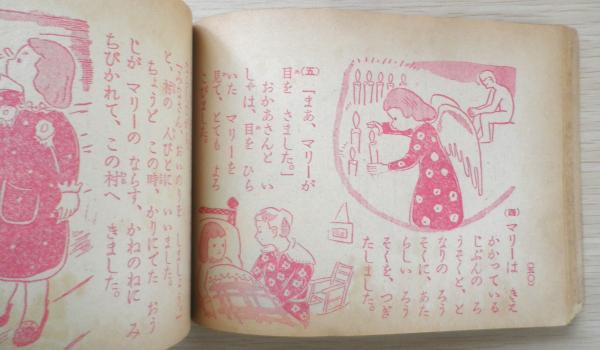 (三〇)
(四) マリーは きえ
かかっている
じぶんの ろ
うそくと、と
なりの ろう
そくに、あた
らしい ろう
そくを、つぎ
たしました。
(五) 「まあ、マリーが
目を さました。」
おかあさんと い
しゃは、目を ひら
いた マリーを
見て、とても よろ
こびました。
と、村の 人びとに いいました。
ちょうど この時、かりにでた おう
じが マリーの ならす、かねのねに み
ちびかれて、この村へ きました。